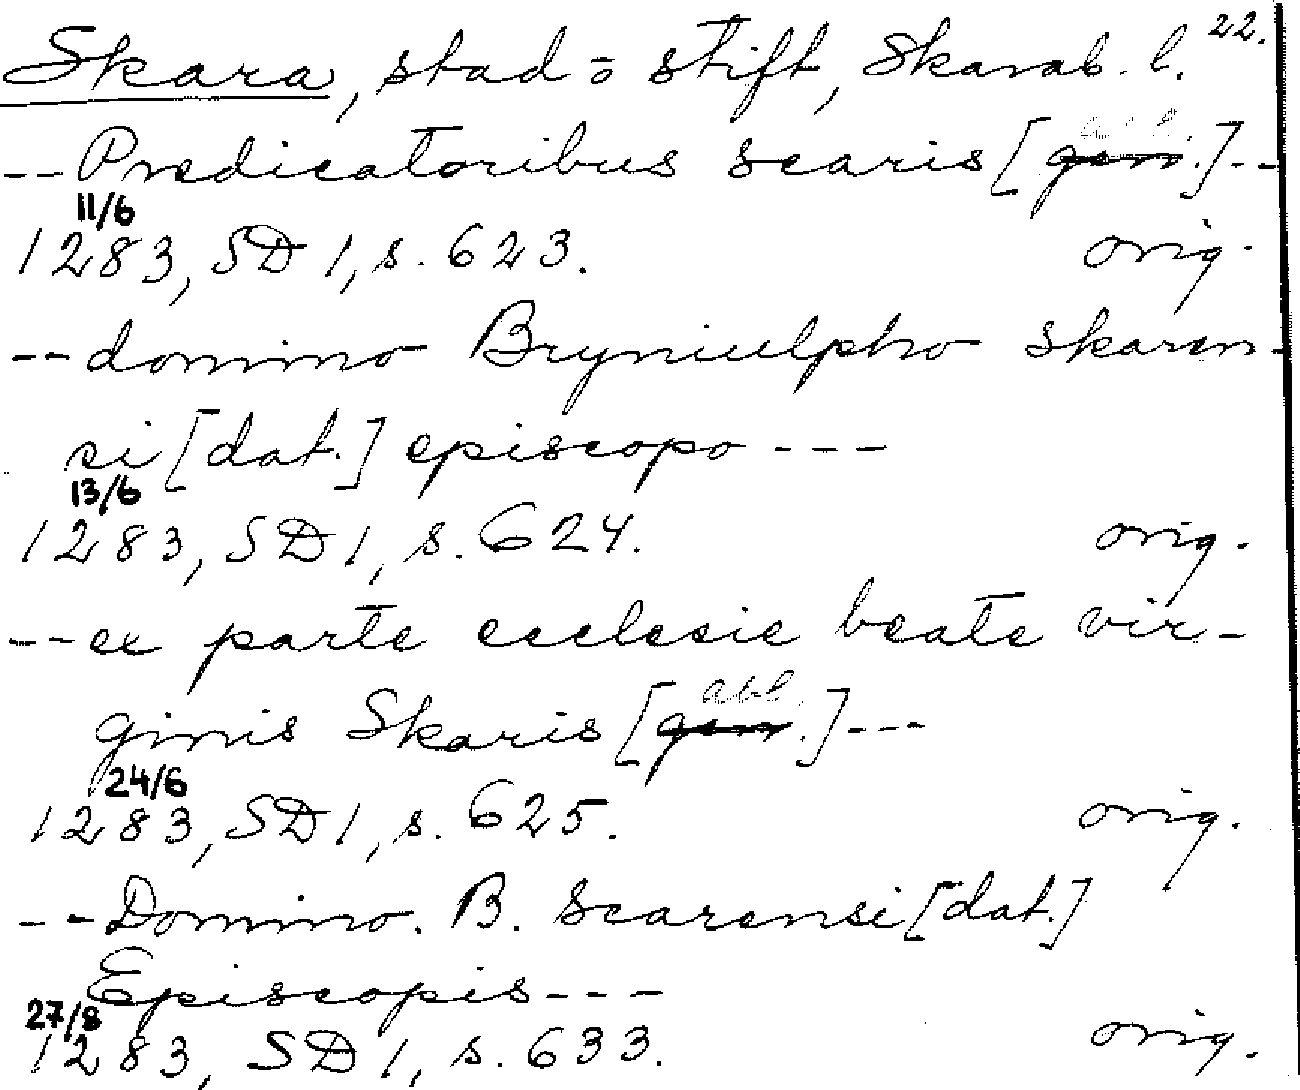 Skara, stad o stift, Skarab. l. 22.
--Predicatoribus scaris [gen. abl.]--
11/6
1283, SD 1, s. 623. orig.
--domino Bryniulpho skaren-
si [dat.] episcopo ---
13/6
1283, SD 1, s. 624. orig.
--ex parte ecclesie beate vir-
ginis Skaris [gen. abl.]---
24/6
1283, SD 1, s. 625. orig.
--Domino. B. Scarensi [dat.]
Episcopis---
27/8
1283, SD 1, s. 633. orig.